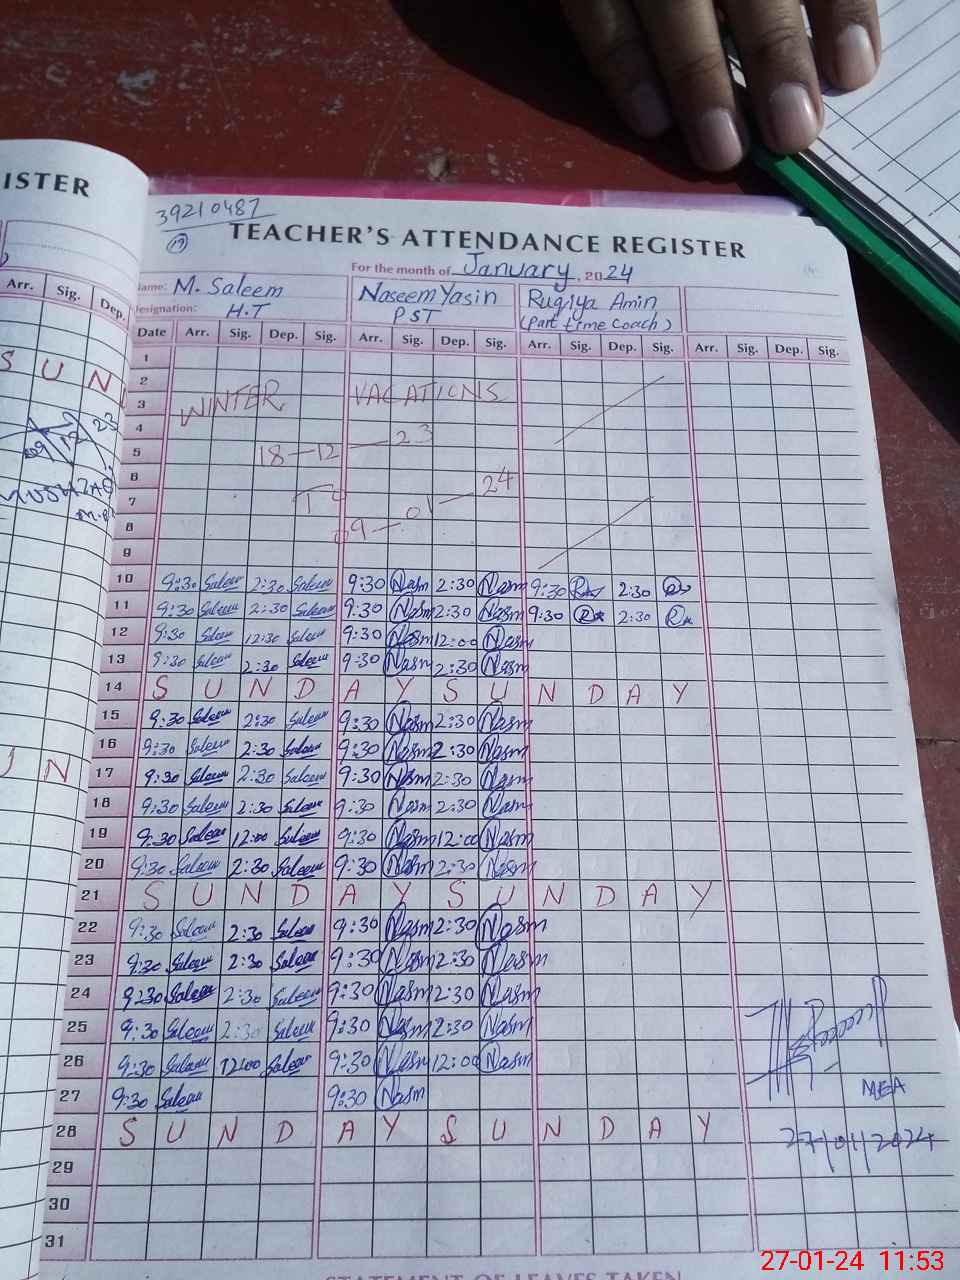 ISTER
Arr. Sig. Dep.
S U N
09/12/23
U N
39210487
(19)
TEACHER'S ATTENDANCE REGISTER
For the month of January, 2024
Name: M. Saleem Naseem Yasin Ruqiya Amin
Designation: H.T PST (Part time coach)
Date Arr. Sig. Dep. Sig. Arr. Sig. Dep. Sig. Arr. Sig. Dep. Sig. Arr. Sig. Dep. Sig.
1
2
3 WINTER VACATIONS
4
5 18-12-23
6
7 To
8 09-01-24
9
10 9:30 Saleem 2:30 Saleem 9:30 Nasm 2:30 Nasm 9:30 2:30
11 9:30 Saleem 2:30 Saleem 9:30 Nasm 2:30 Nasm 9:30 2:30
12 9:30 Saleem 12:30 Saleem 9:30 Nasm 12:00 Nasm
13 9:30 Saleem 2:30 Saleem 9:30 Nasm 2:30 Nasm
14 S U N D A Y S U N D A Y
15 9:30 Saleem 2:30 Saleem 9:30 Nasm 2:30 Nasm
16 9:30 Saleem 2:30 Saleem 9:30 Nasm 2:30 Nasm
17 9:30 Saleem 2:30 Saleem 9:30 Nasm 2:30 Nasm
18 9:30 Saleem 2:30 Saleem 9:30 Nasm 2:30 Nasm
19 9:30 Saleem 12:00 Saleem 9:30 Nasm 12:00 Nasm
20 9:30 Saleem 2:30 Saleem 9:30 Nasm 2:30 Nasm
21 S U N D A Y S U N D A Y
22 9:30 Saleem 2:30 Saleem 9:30 Nasm 2:30 Nasm
23 9:30 Saleem 2:30 Saleem 9:30 Nasm 2:30 Nasm
24 9:30 Saleem 2:30 Saleem 9:30 Nasm 2:30 Nasm
25 9:30 Saleem 2:30 Saleem 9:30 Nasm 2:30 Nasm
26 9:30 Saleem 12:00 Saleem 9:30 Nasm 12:00 Nasm
27 9:30 Saleem 9:30 Nasm
MEA
28 S U N D A Y S U N D A Y
27/01/2024
29
30
31
STATEMENT OF LEAVES TAKEN
27-01-24 11:53